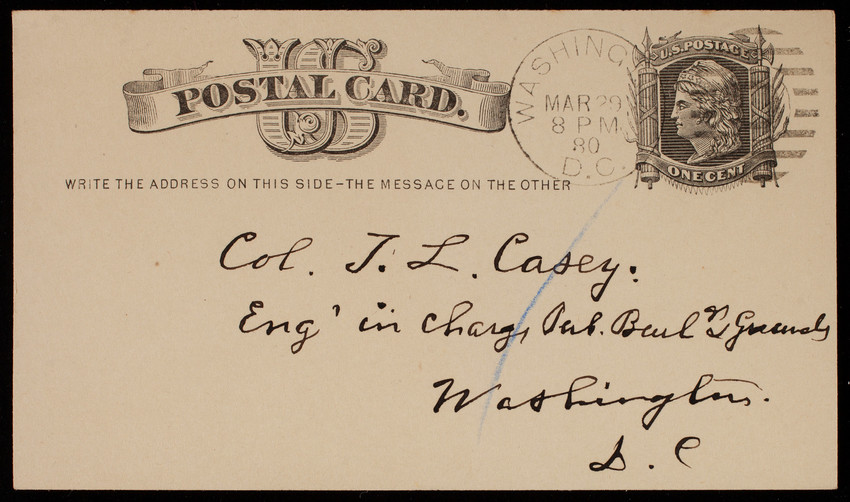 US
POSTAL CARD.
WASHING
MAR 29
8 PM
80
D.C.
U.S. POSTAGE
ONE CENT
WRITE THE ADDRESS ON THIS SIDE-THE MESSAGE ON THE OTHER
Col. T. L. Casey.
Eng' in charge Pub. Buil & Grounds
Washington.
D. C